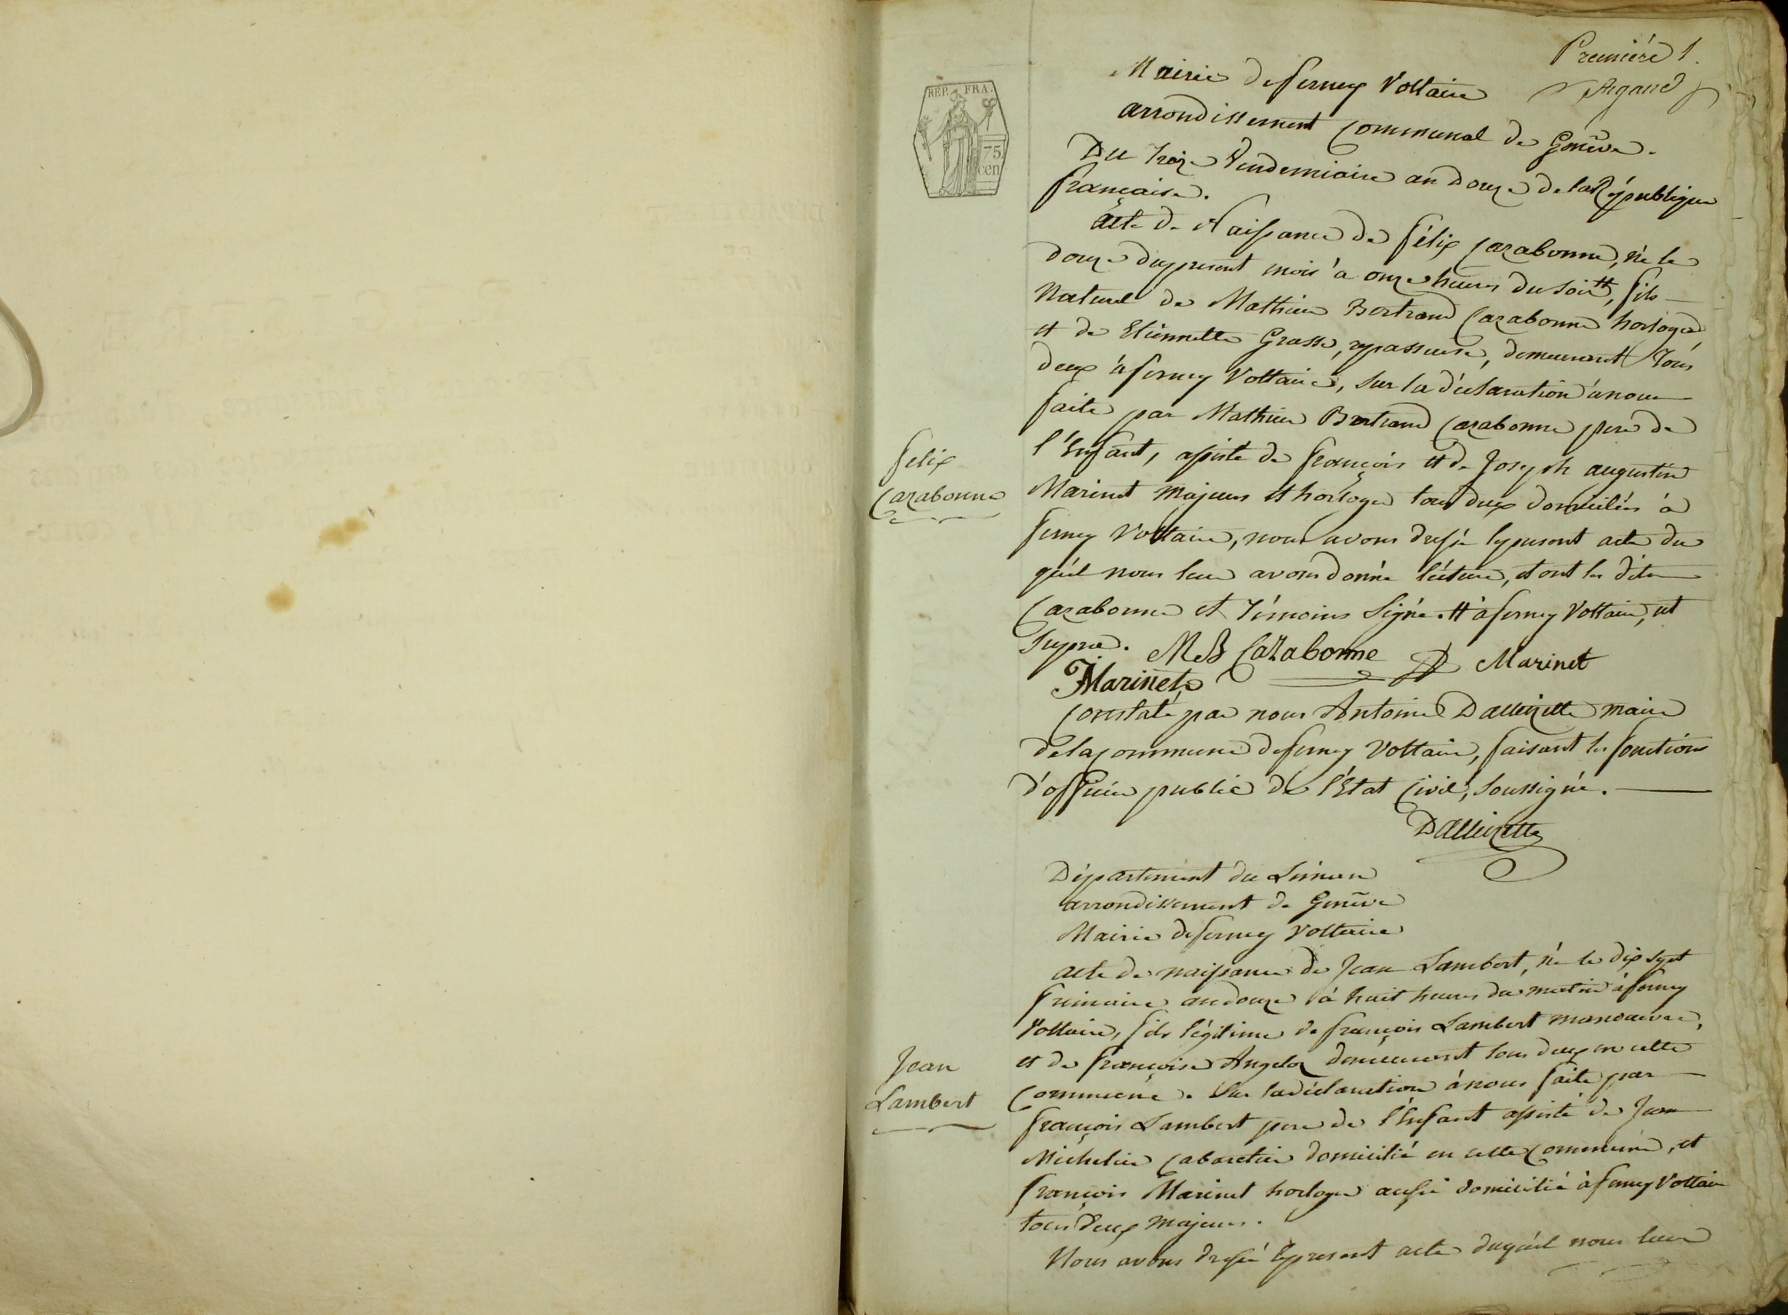 Première 1.
Argand
REP. FRA.
75
cen
Mairie de ferney Voltaire
arrondissement Communal de Genêve.
Du treize Vendemiaire an douze de la République
française.
Acte de Naissance de félix Cazabonne, né le
douze du present mois à onze heures du soir #, fils
Naturel de Mathieu Bertrand Cazabonne horloger
et de Etiennette Grasse, repasseuse, demeurant tous
deux à ferney Voltaire, sur la déclaration à nous
faite par Mathieu Bertrand Cazabonne pere de
l'Enfant, assisté de françois et de Joseph augustin
Marinet majeurs et horloger tous deux domiciliés à
ferney Voltaire, nous avons dressé le present acte du
quel nous leur avons donné lécture, et ont les dits
Cazabonne et témoins signé. # à ferney Voltaire, ut
supra. M B Cazabonne Marinet
Marinet
felix
Cazabonne
Constaté par nous Antoine Dallizette maire
de la commune de ferney Voltaire, faisant les fonctions
d'officier public de l'Etat Civil, soussigné.
Dallizette
Département du Léman
arrondissement de Genêve
Mairie de ferney Voltaire
acte de naissance de Jean Lambert, né le dix sept
frimaire an douze à huit heures du matin à ferney
Voltaire, fils légitime de françois Lambert manoeuvre,
et de françoise Angeloz demeurant tous deux en cette
Commune. Sur la déclaration à nous faite par
françois Lambert pere de l'Enfant assisté de Jean
Michelin Cabaretier domicilié en cette Commune, et
françois Marinet horloger aussi domicilié à ferney Voltaire
tous deux majeurs.
Jean
Lambert
Nous avons dressé le present acte duquel nous leur